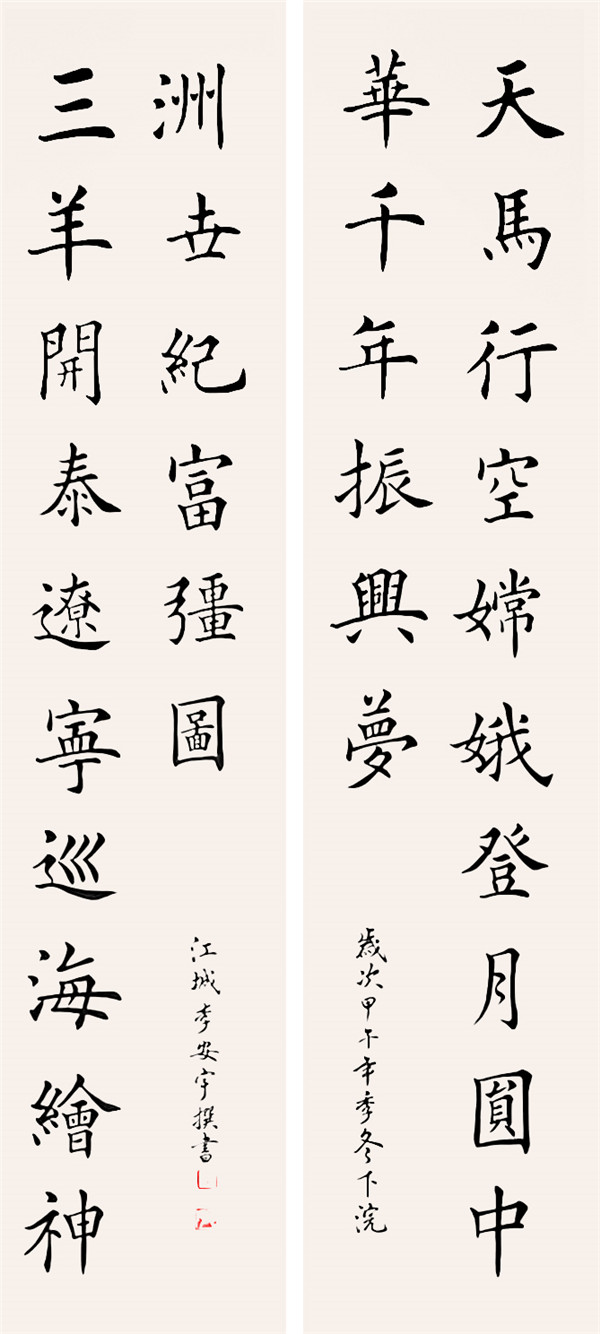 天馬行空嫦娥登月圓中
華千年振興夢
歲次甲午年季冬下浣
三羊開泰遼寧巡海繪神
洲世紀富彊圖
江城李安宇撰書